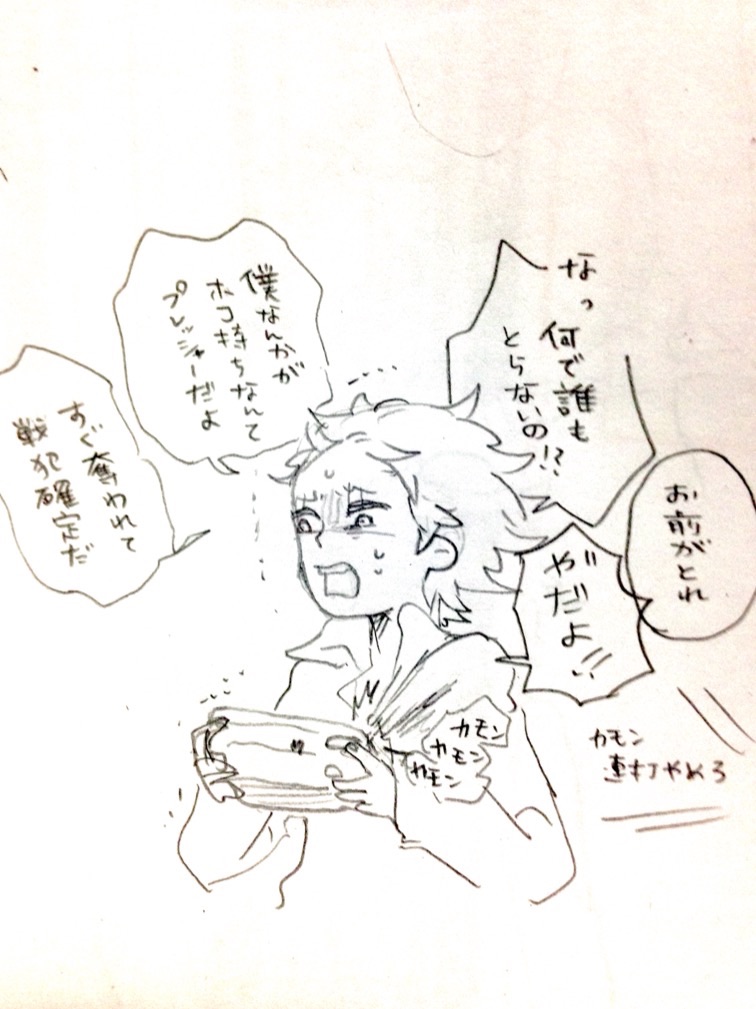 なっ
何で誰も
とらないの!?
お前がとれ
やだよ!!
僕なんかが
ホコ持ちなんて
プレッシャーだよ
すぐ奪われて
戦犯確定だ
カモン
カモン
カモン
カモン
連打やめろ